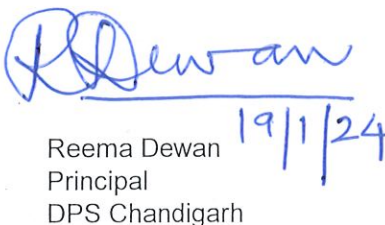 RDewan
19/1/24
Reema Dewan
Principal
DPS Chandigarh